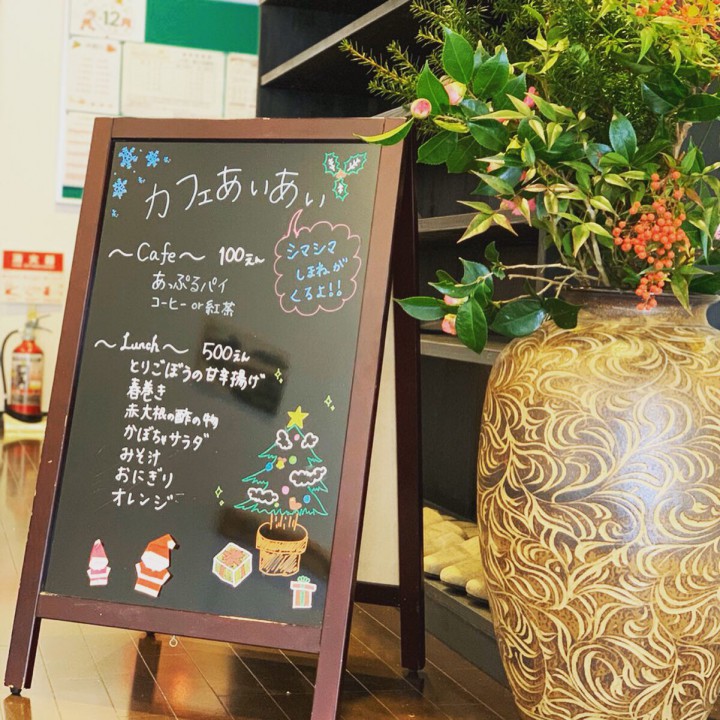 12
カフェあいあい
~Cafe~ 100えん
あっぷるパイ
コーヒー or 紅茶
シマシマ
しまねが
くるよ!!
~Lunch~ 500えん
とりごぼうの甘辛揚げ
春巻き
赤大根の酢の物
かぼちゃサラダ
みそ汁
おにぎり
オレンジ
消火器